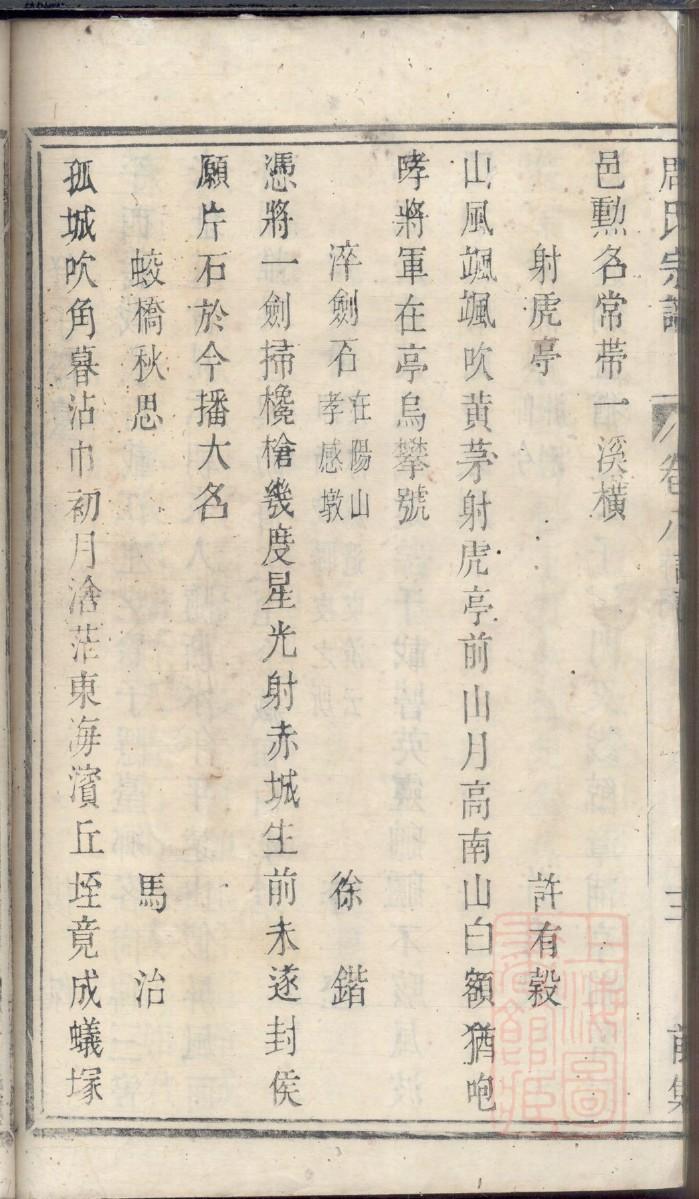 周氏宗譜
卷八
三
前集
邑勲名常带一溪橫
射虎亭 許有穀
山風颯颯吹黃茅射虎亭前山月高南山白額猶咆
哮將軍在亭烏攀號
淬劍石 在陽山孝感墩 徐鍇
憑將一劍掃欃槍㡬度星光射赤城生前未遂封侯
願片石於今播大名
蛟橋秋思 馬治
孤城吹角暮沾巾初月滄茫東海濱丘垤竟成蟻塚